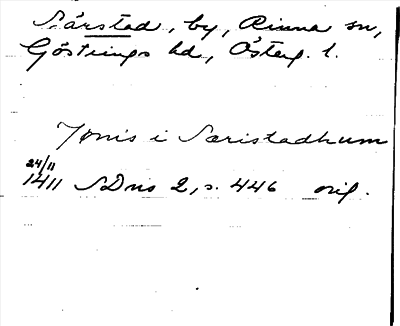 Särstad, by, Rinna sn,
Göstrings hd, Österg. l.
Jønis i Særistadhum
24/11
1411 SDns 2, s. 446 orig.